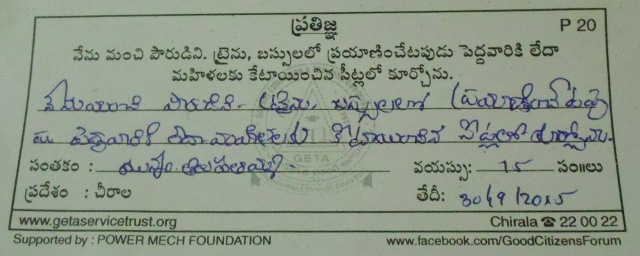 ప్రతిజ్ఞ P 20
నేను మంచి పౌరుడిని. ట్రైను, బస్సులలో ప్రయాణించేటపుడు పెద్దవారికి లేదా
మహిళలకు కేటాయించిన సీట్లలో కూర్చోను.
నేను మంచి పౌరుడిని ట్రైను బస్సులలో ప్రయాణించేటపు
డు పెద్దవారికి లేదా మహిళలకు కేటాయించిన సీట్లలో కూర్చోను.
సంతకం : వయస్సు: 15 సం॥లు
ప్రదేశం : చీరాల తేదీ: 30/9/2015
www.getaservicetrust.org Chirala ☎ 22 00 22
Supported by : POWER MECH FOUNDATION www.facebook.com/GoodCitizensForum
GETA